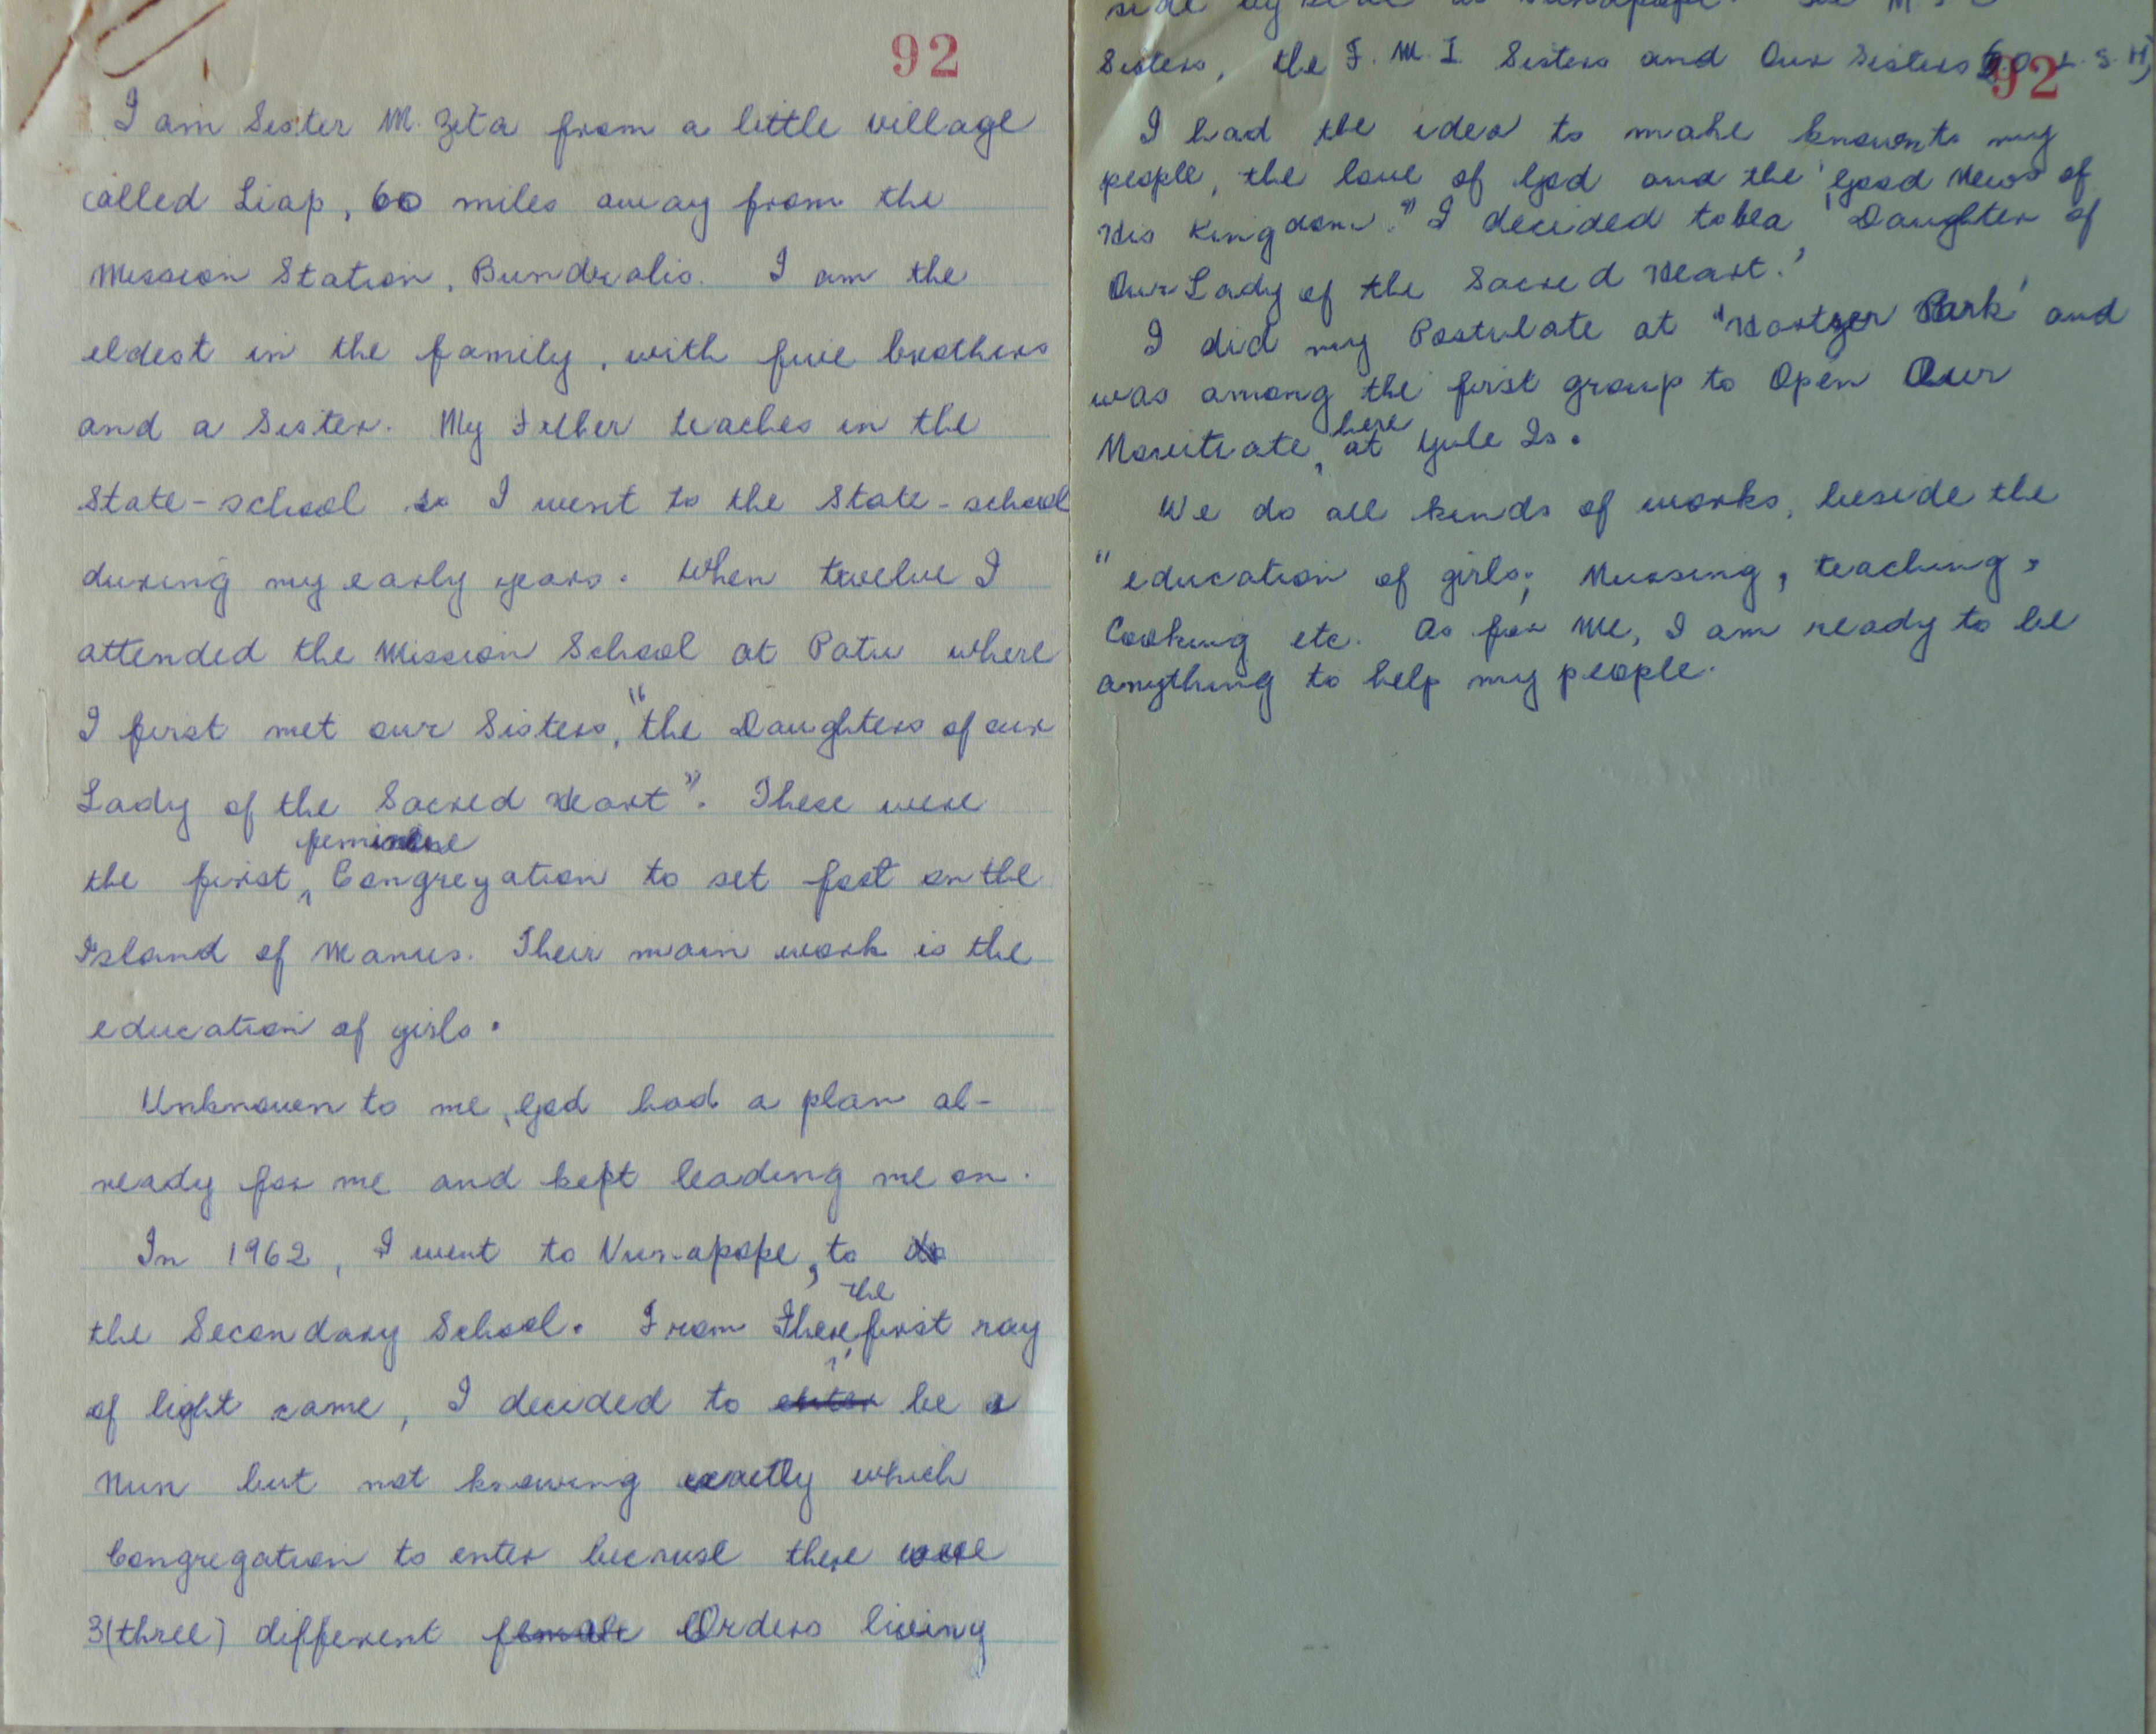 92
I am Sister M. Zita from a little village
called Liap, 60 miles away from the
Mission Station, Bundralis. I am the
eldest in the family, with five brothers
and a Sister. My Father teaches in the
State-school so I went to the State-school
during my early years. When twelve I
attended the Mission School at Patu where
I first met our Sisters, "the Daughters of our
Lady of the Sacred Heart". These were
feminine
the first Congregation to set foot on the
Island of Manus. Their main work is the
education of girls.
Unknown to me, God had a plan al-
ready for me and kept leading me on.
In 1962, I went to Vunapope, to do
the
the Secondary School. From There first ray
of light came, I decided to enter be a
Nun but not knowing exactly which
Congregation to enter because there were
3(three) different female Orders living
side by side at Vunapope. M. S. C
Sisters, the F. M. I Sisters and Our Sisters O. L. S. H)
92
I had the idea to make known to my
people, the love of God and the 'Good News of
His Kingdom." I decided to be a 'Daughter of
Our Lady of the Sacred Heart.'
I did my Postulate at "Hartzer Park' and
was among the first group to Open Our
here
Novitiate, at Yule Is.
We do all kinds of works, beside the
"education of girls; Nursing, teaching,
Cooking etc. As for Me, I am ready to be
anything to help my people.